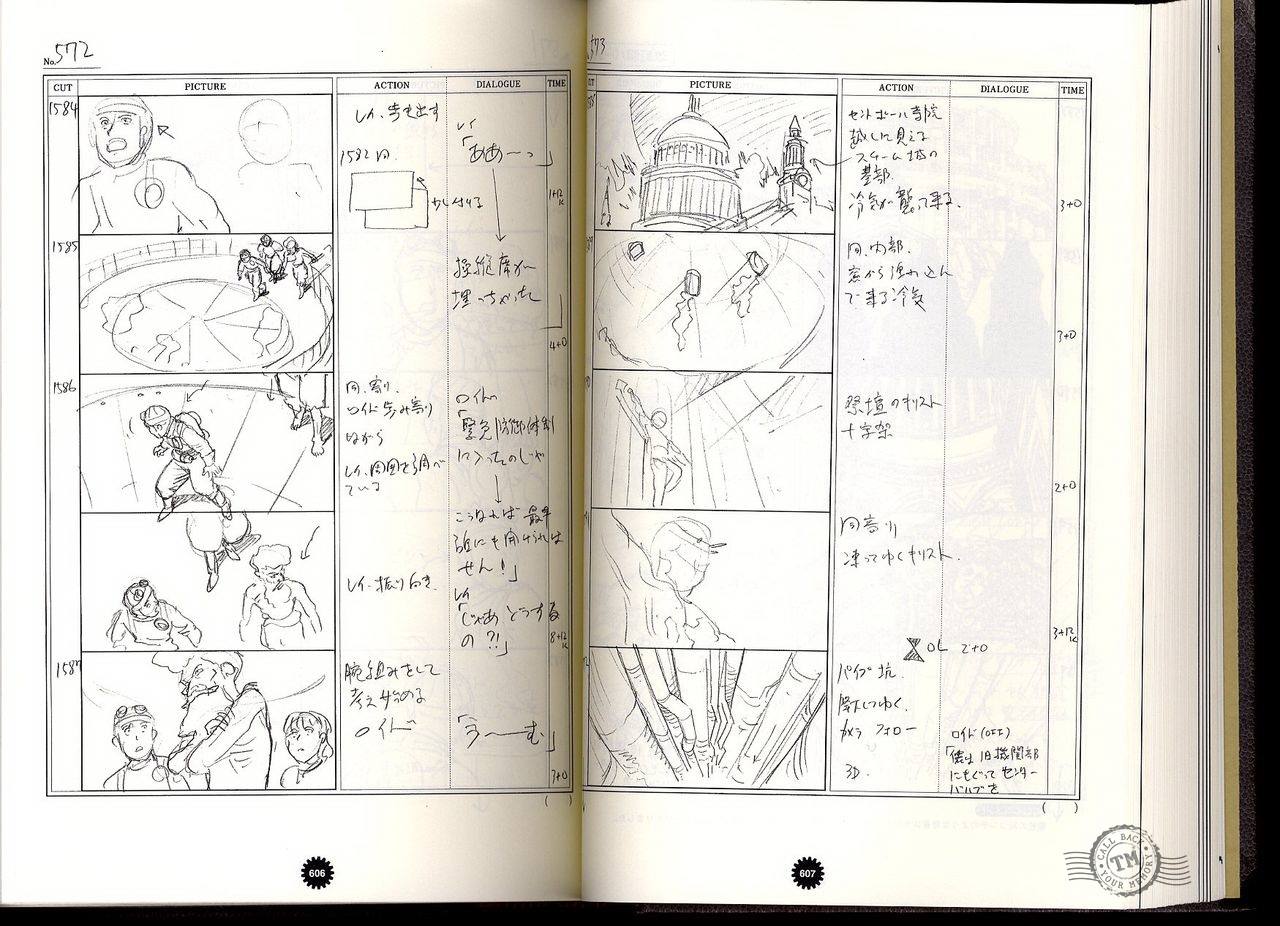 No. 572
CUT PICTURE ACTION DIALOGUE TIME
1584
レイ、歩き出す
1582 同.
レイ
「ああ〜っ」
1+12K
1585
操縦席が
埋っちゃった
4+0
1586
同、寄り.
ロイド歩み寄り
ながら
レイ、周囲を調べ
ている
ロイド
「緊急防御体制
に入ったのじゃ
こうなれば 最早
誰にも開けられは
せん!」
レイ、振り向き.
レイ
「じゃあ どうする
の?!」
8+12K
1587
腕組みをして
考え始める
ロイド
「う〜〜む」
3+0
( )
606
573
CUT PICTURE ACTION DIALOGUE TIME
セントポール寺院
越しに見える
スチーム城の
基部.
冷気が襲って来る.
3+0
同、内部.
窓から流れ込ん
で来る冷気
3+0
祭壇のキリスト
十字架
2+0
同寄り
凍ってゆくキリスト.
3+12K
OL 2+0
パイプ坑.
カメラ フォロー
3D.
ロイド(OFF)
「儂は旧機関部
にもぐって センター
バルブを
( )
607
CALL BACK
TM
YOUR MEMORY